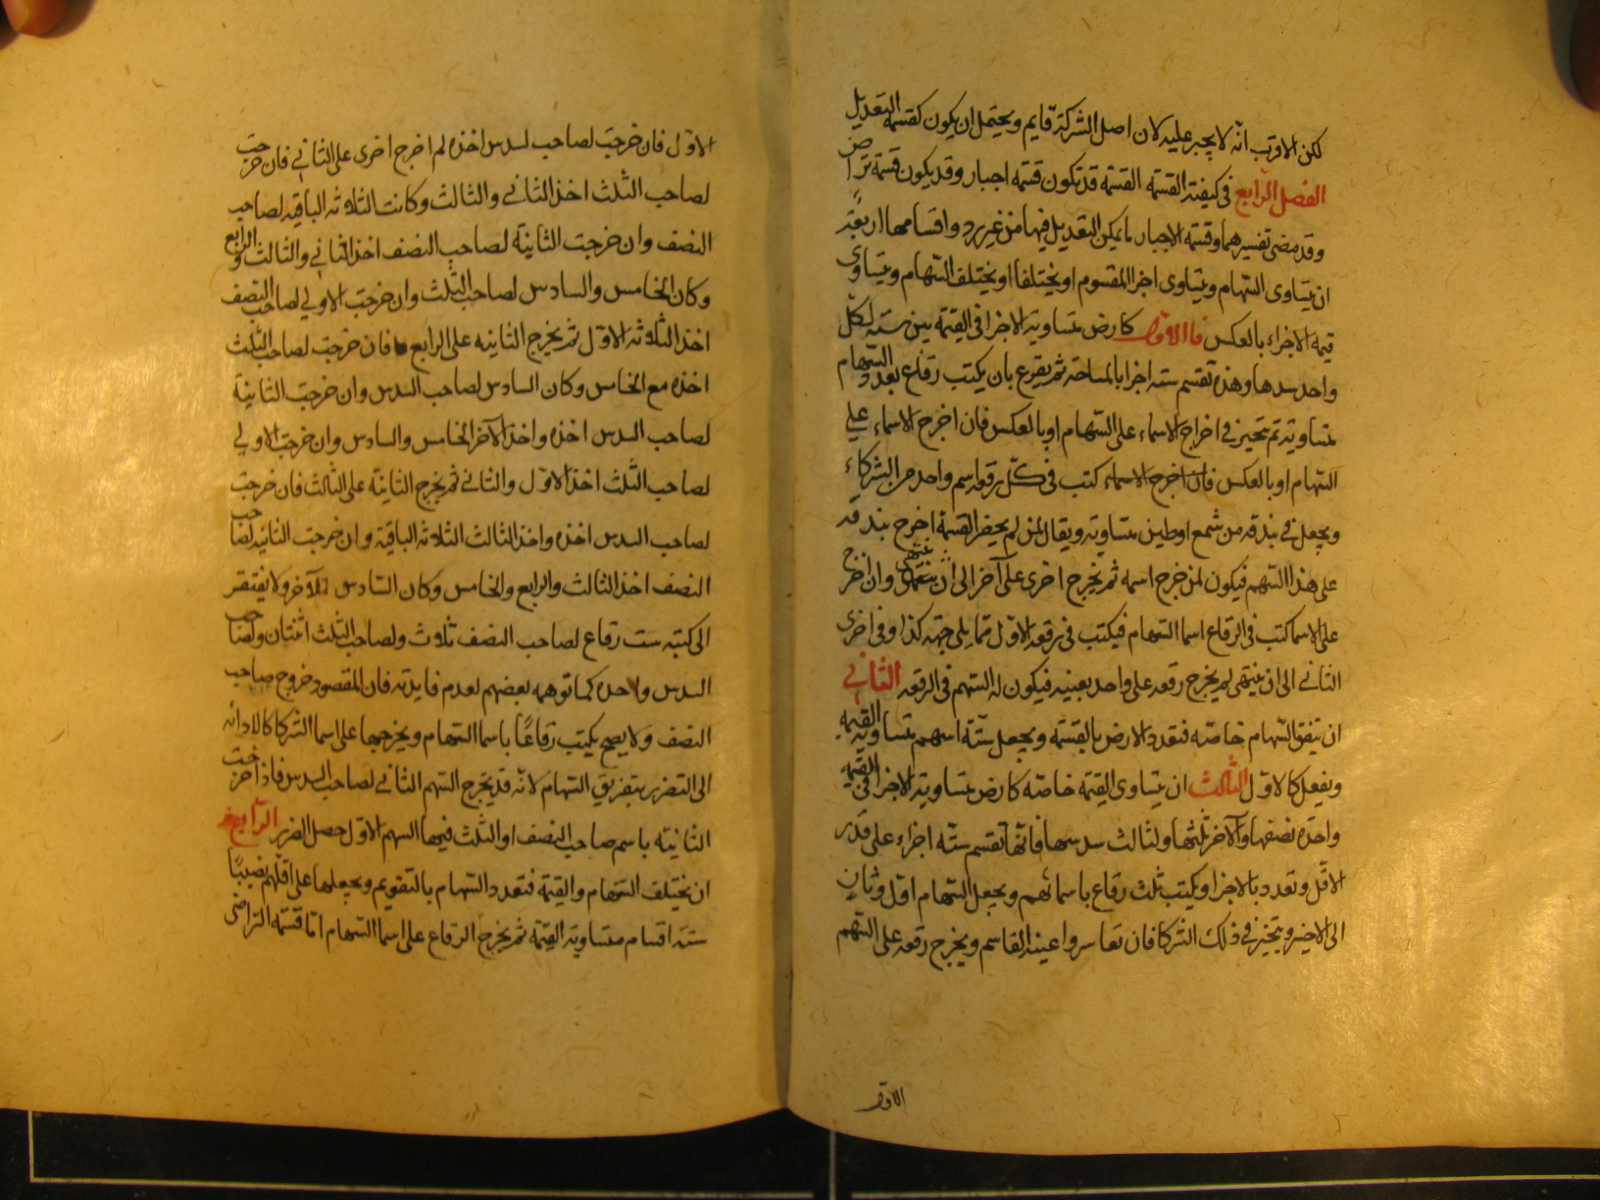 لكن الاقرب انه لا يجبر عليه لان اصل الشركة قايم ويحتمل ان يكون كقسمة التعديل
الفصل الرابع في كيفية القسمة القسمة قد تكون قسمة اجبار وقد يكون قسمة تراض
وقد مضى تفسيرهما وقسمة الاجبار ما يمكن التعديل فيها من غير رد واقسامها اربعة
ان يتساوى السهام ويتساوى اجزا المقسوم او يختلفا او يختلف السهام ويتساوى
قيمة الاجزاء بالعكس فالاول كارض متساوية الاجزا في القيمة بين ستة لكل
واحد سدسها وهذه تقسم ستة اجزا بالمساحة ثم يقرع بان يكتب رقاع بعدد السهام
متساوية ثم يتخير في اخراج الاسماء على السهام او بالعكس فان اخرج الاسماء على
السهام او بالعكس فان اخرج الاسماء كتب في كل رقعة اسم واحد من الشركاء
ويجعل في بندقة من شمع او طين متساوية ويقال لمن لم يحضر القسمة اخرج بندقة
على هذا السهم فيكون لمن خرج اسمه ثم يخرج اخرى على آخر الى ان ينتهى وان اخرج
على الاسما كتب في الرقاع اسما السهام فيكتب في رقعة الاول مما يلي جهة كذا وفي اخرى
الثاني الى ان ينتهى ثم يخرج رقعة على واحد بعينه فيكون له السهم في الرقعة الثاني
ان تتفق السهام خاصة فتعدد الارض بالقسمة ويجعل ستة اسهم متساوية القيمة
ويفعل كالاول الثالث ان يتساوى القيمة خاصة كارض متساوية الاجزا في القيمة
واحده نصفها وللآخر ثلثها ولثالث سدسها فانها تقسم ستة اجزاء على قدر
الاقل وتعدد بالاجزا ويكتب ثلث رقاع باسمائهم ويجعل السهام اول وثان
الى الاخير ويتخير في ذلك الشركا فان تعاسروا عينه القاسم ويخرج رقعة على السهم
الاول
الاول فان خرجت لصاحب السدس اخذه ثم اخرج اخرى على الثاني فان خرجت
لصاحب الثلث اخذ الثاني والثالث وكانت الثلاثة الباقية لصاحب
النصف وان خرجت الثانية لصاحب النصف اخذ الثاني والثالث والرابع
وكان الخامس والسادس لصاحب الثلث وان خرجت الاولي لصاحب النصف
اخذ الثلاثة الاول ثم يخرج الثانية على الرابع فان خرجت لصاحب الثلث
اخذه مع الخامس وكان السادس لصاحب السدس وان خرجت الثانية
لصاحب السدس اخذه واخذ الآخر الخامس والسادس وان خرجت الاولي
لصاحب الثلث اخذ الاول والثاني ثم يخرج الثانية على الثالث فان خرجت
لصاحب السدس اخذه واخذ الثالث الثلاثة الباقية وان خرجت الثانية لصاحب
النصف اخذ الثالث والرابع والخامس وكان السادس للآخر ولا يفتقر
الى كتبه ست رقاع لصاحب النصف ثلاث ولصاحب الثلث اثنتان ولصاحب
السدس واحده كما توهمه بعضهم لعدم فايدته فان المقصود خروج صاحب
النصف ولا يصح يكتب رقاعًا باسما السهام ويخرجها على اسما الشركا لادائه
الى التضرر بتفريق السهام لانه قد يخرج السهم الثاني لصاحب السدس فاذا خرجت
الثانية باسم صاحب النصف او الثلث فيها السهم الاول حصل الضرر الرابع
ان يختلف السهام والقيمة فتعدد السهام بالتقويم ويجعلها على اقلهم نصيبًا
ستة اقسام متساوية القيمة ثم يخرج الرقاع على اسما السهام اما قسمة التراضى